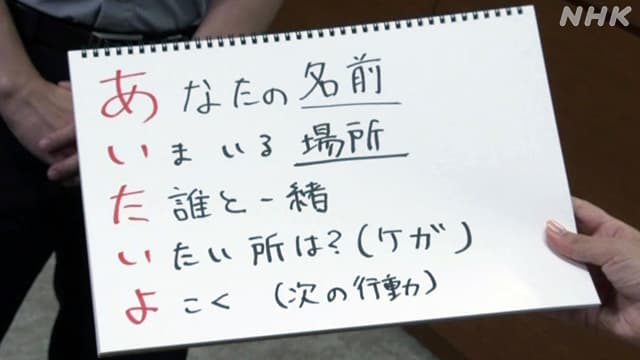 NHK
あなたの名前
いまいる場所
た誰と一緒
いたい所は?(ケガ)
よこく (次の行動)